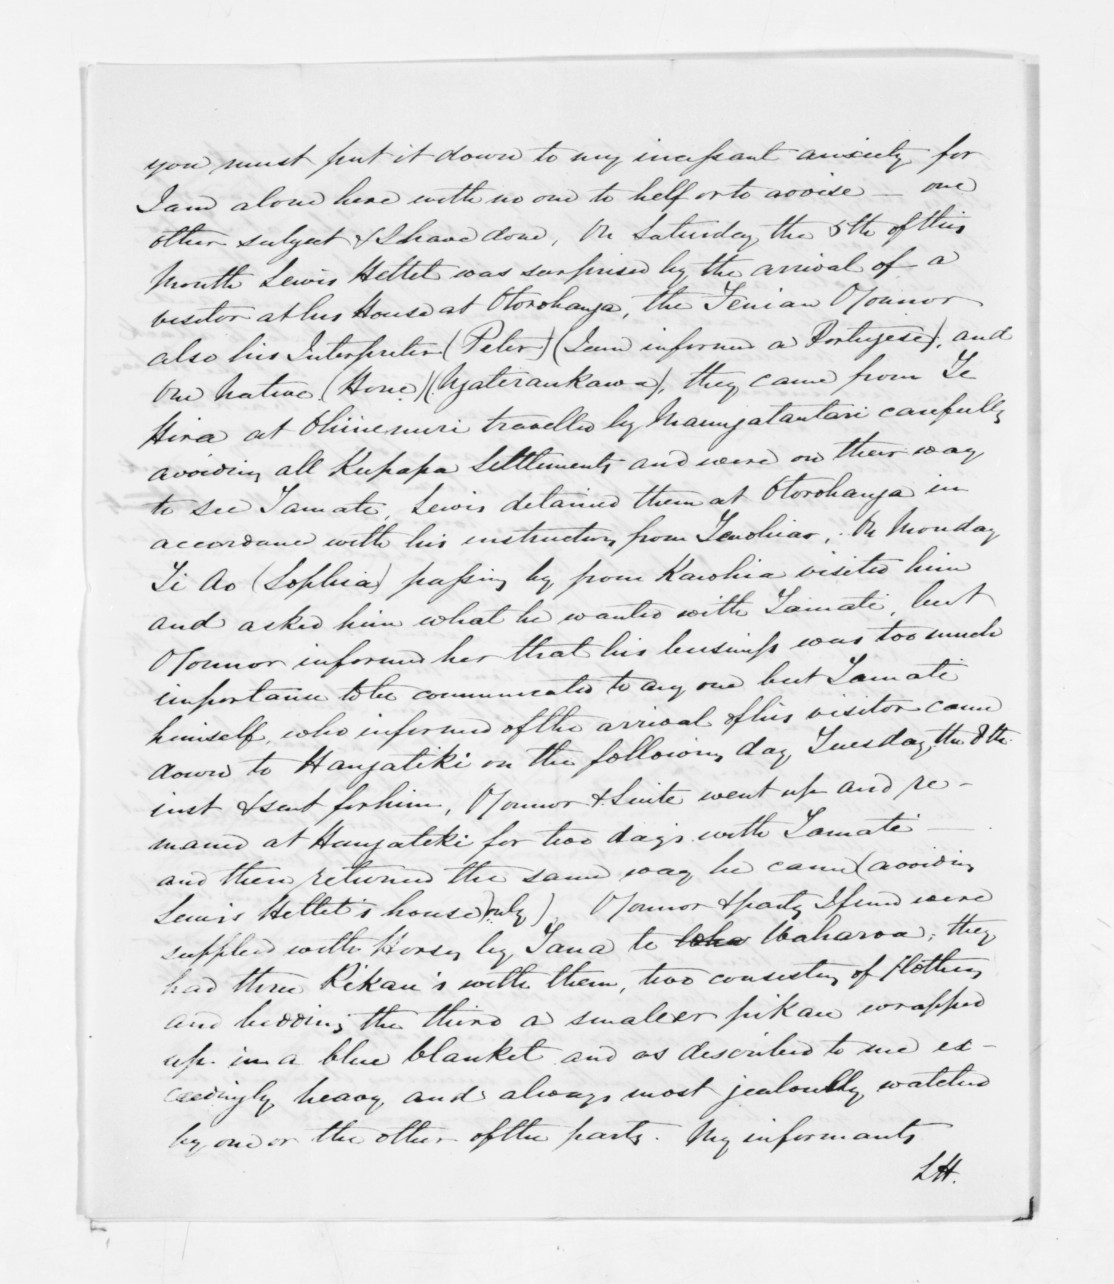 you must put it down to my incessant anxiety for
I am alone here with no one to help or to advise — one
other subject & I have done, On Saturday the 5th of this
Month Lewis Hettet was surprised by the arrival of a
visitor at his House at Otorohanga, the Fenian O'Connor
also his Interpreter (Peter) (I am informed a Portugese), and
One Native (Hone) (Ngateraukawa), they came from Te
Hira at Ohinemuri travelled by Maungatautari carefully
avoiding all Kupapa Settlements and were on their way
to see Tamate, Lewis detained them at Otorohanga in
accordance with his instructions from Tawhiao, On Monday
Ti Ao (Sophia) passing by from Kawhia visited him
and asked him what he wanted with Tamati, but
O'Connor informed her that his business was too much
importance to be communicated to any one but Tamati
himself, who informed of the arrival of his visitor came
down to Hangatiki on the following day Tuesday the 8th
inst & sent for him, O'Connor & Suite went up and re-
mained at Hangatiki for two days with Tamati —
and then returned the same way he came (avoiding
Lewis Hettet's house only). O'Connor & party I find were
supplied with Horses by Tana te Waharoa; they
had three Pikau's with them, two consisting of clothing
and bedding the third a smaller pikau wrapped
up in a blue blanket and as described to me ex-
ceedingly heavy and always most jealously watched
by one or the other of the party. My informants
LH.